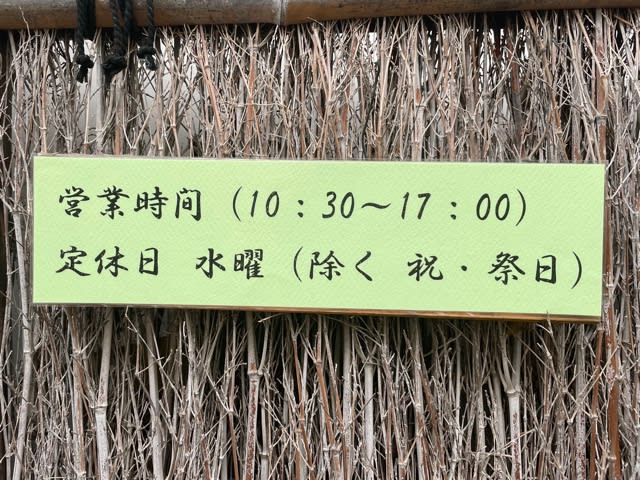 営業時間（10：30～17：00）
定休日 水曜（除く 祝・祭日）